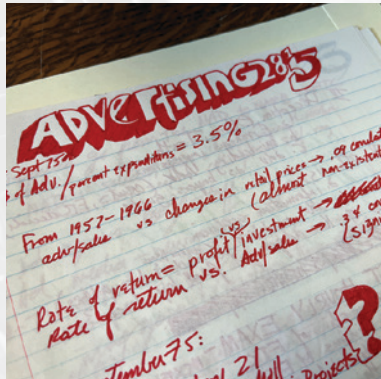 ADVERTISING 285
Sept 75
of Adv./percent expenditures = 3.5%
From 1957-1966
adv/sales vs changes in retail prices → .09
(almost non-existent
Rate of return = profit/investment →
Rate of return vs. Adv/sales → .34
(sign
75:
21
Projects
?